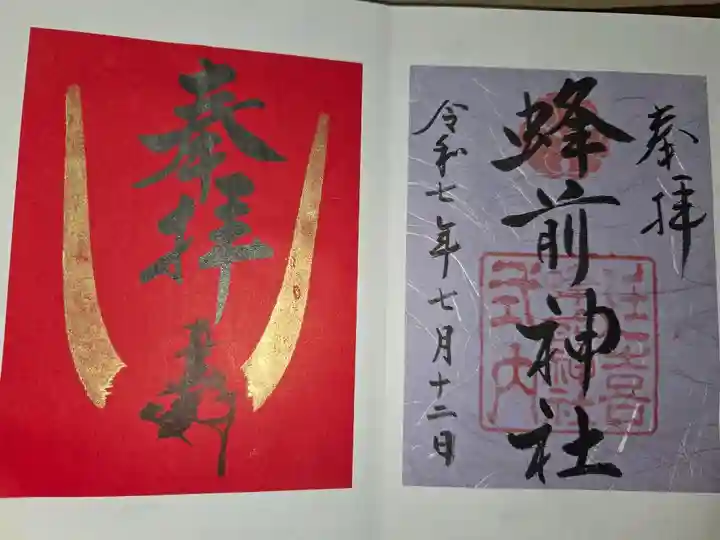 奉拝
奉拝
蜂前神社
令和七年七月十二日